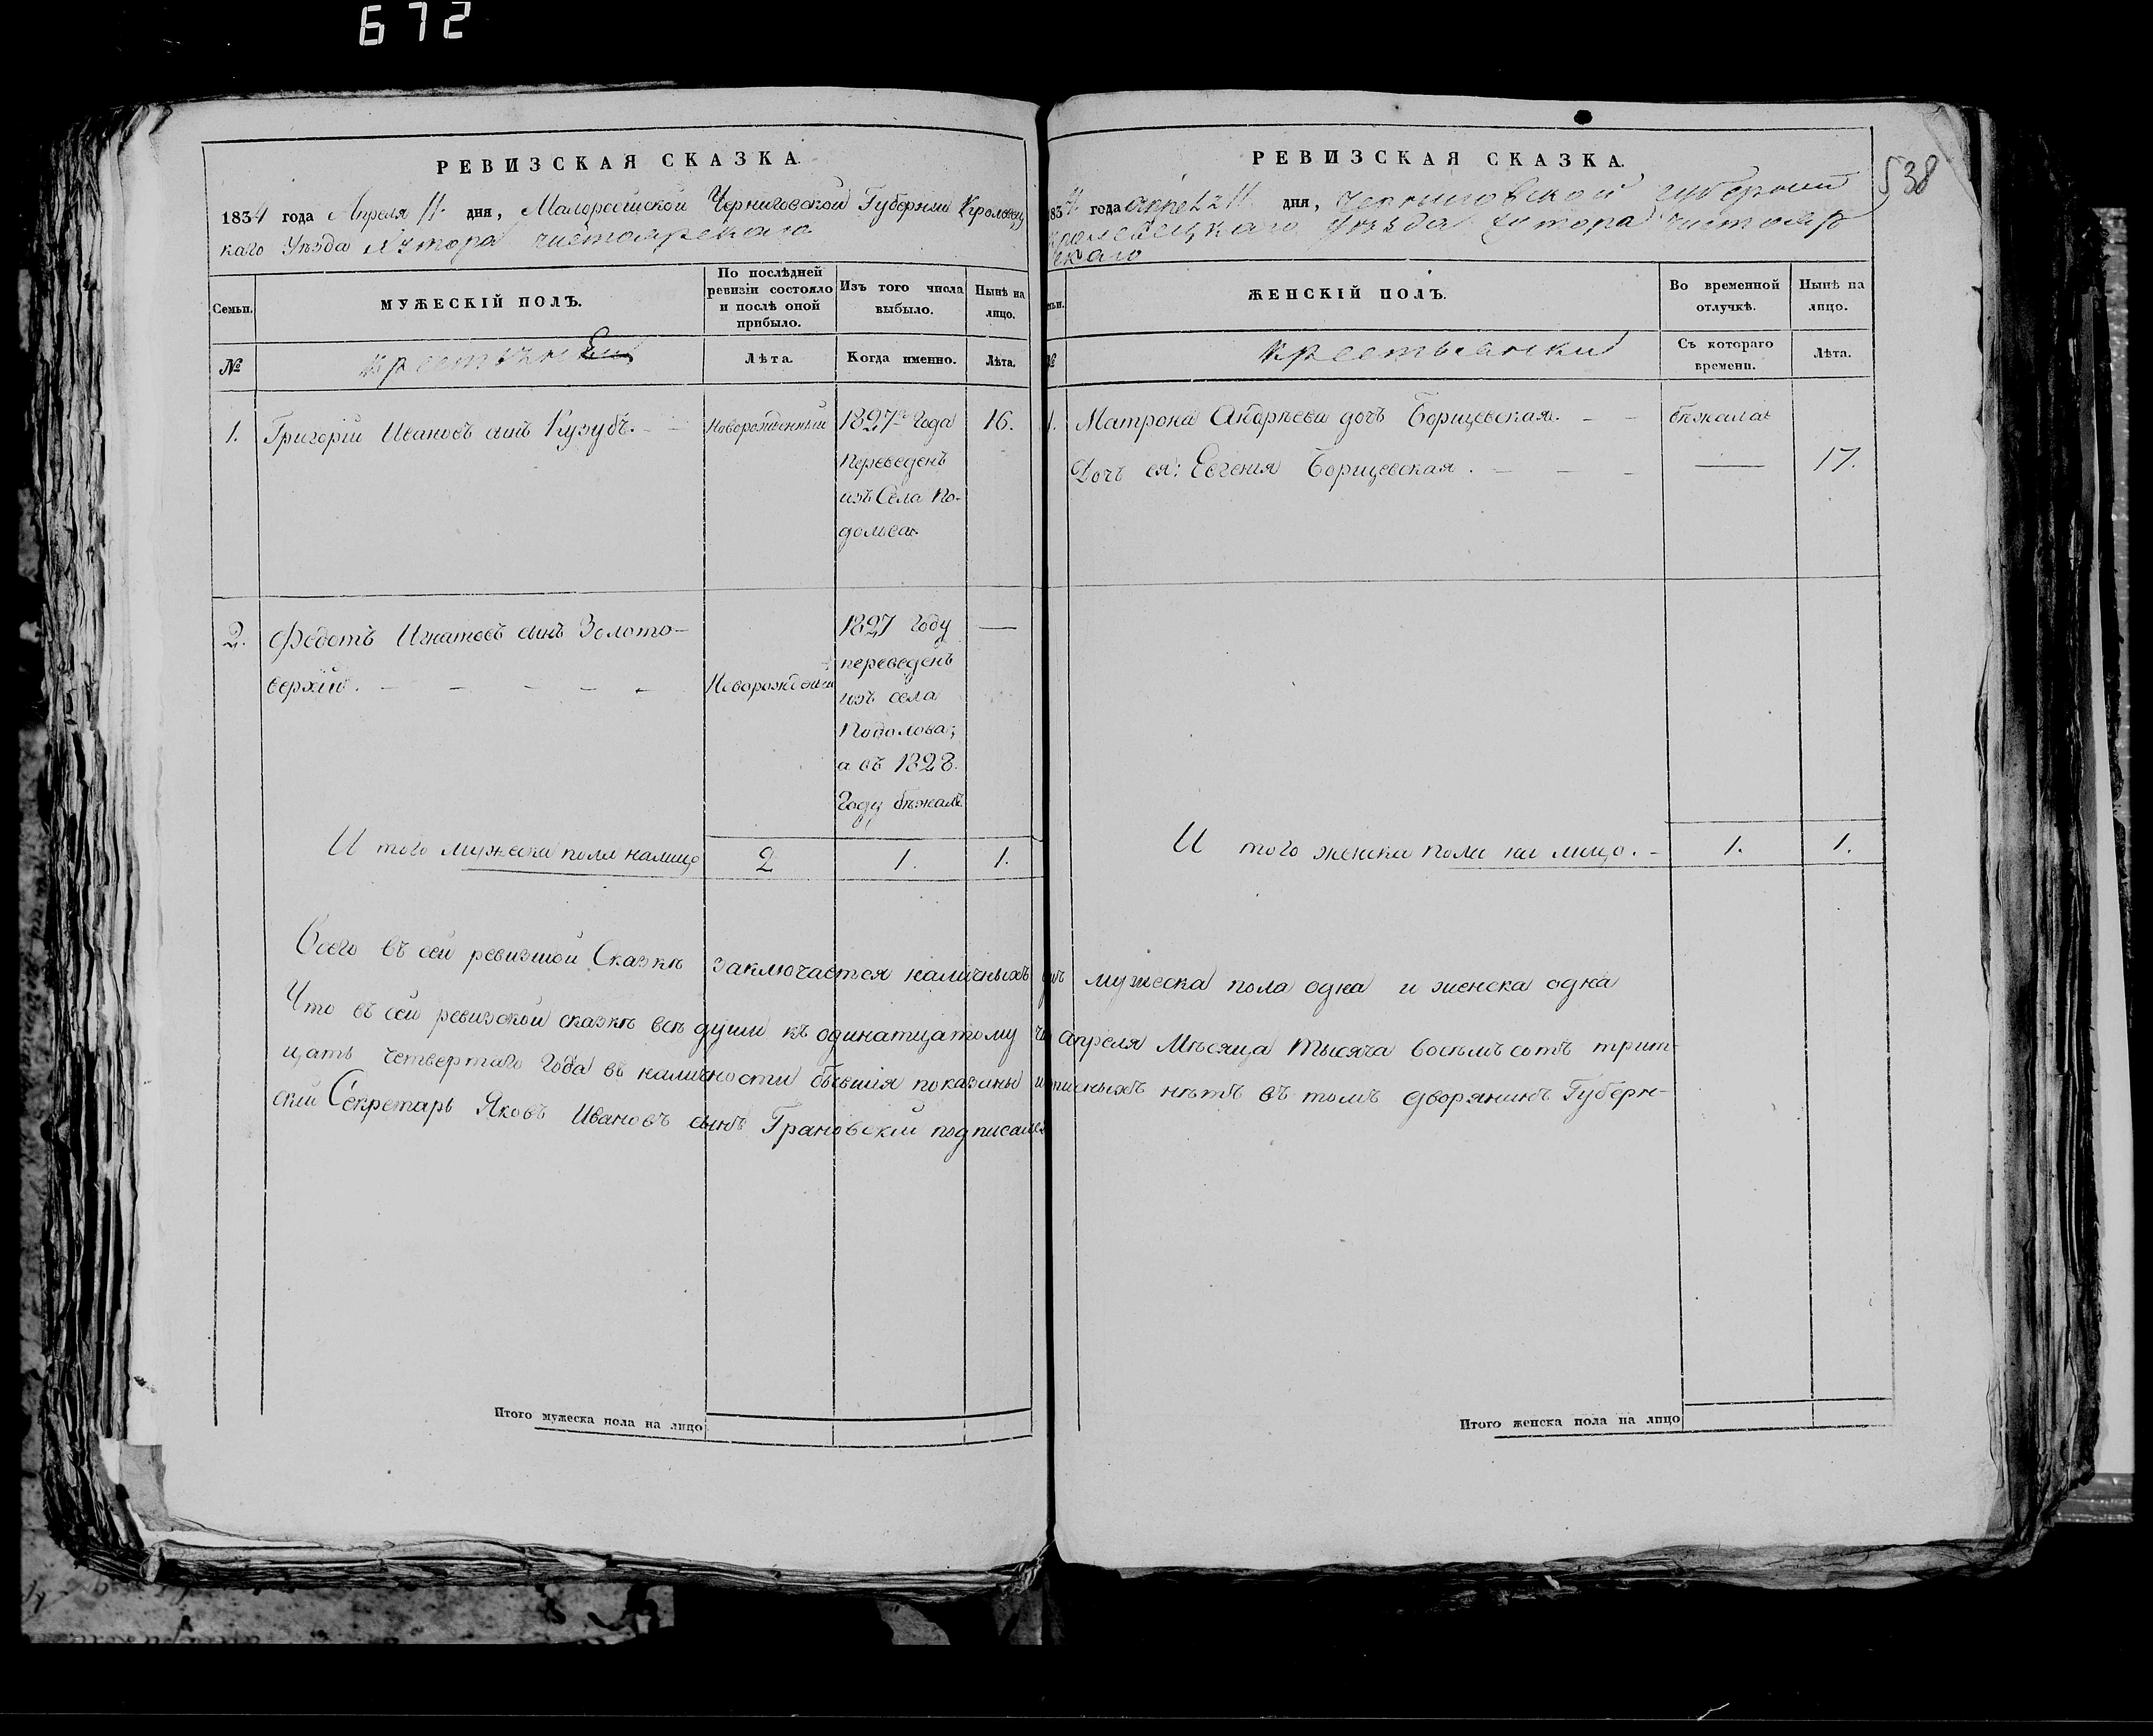 672
РЕВИЗСКАЯ СКАЗКА.
1834 года Апреля 11 дня, Малоросійской Черниговской Губерніи Кролевец
каго Уѣзда Хутора чистоярскаго
Семьи.
МУЖЕСКІЙ ПОЛЪ.
По послѣдней
ревизіи состояло
и послѣ оной
прибыло.
Изъ того числа
выбыло.
Нынѣ на
лицо.
№
Лѣта.
Когда именно.
Лѣта.
1. Григорій Ивановъ сынъ Кузубъ. Новорожденный 1827го Года 16.
переведенъ
изъ Села По-
долова
2. Федотъ Игнатовъ сынъ Золото- 1827 Году —
верхій. Новорожденый переведенъ
изъ села
Подолова;
а въ 1828.
Году бѣжалъ
И того мужеска пола налицо 2 1. 1.
РЕВИЗСКАЯ СКАЗКА.
538
1834 года апреля 11 дня, Черниговской губерніи
кролевецкаго уѣзда хутора чистояр
скаго
ЖЕНСКІЙ ПОЛЪ.
Во временной
отлучкѣ.
Нынѣ на
лицо.
№
крестьянки
Съ котораго
времени.
Лѣта.
1. Матрона Андрѣева дочь Борщевская. бѣжала
Дочь ея: Евгенія Борщевская. — 17.
И того женска пола на лицо. 1. 1.
Всего въ сей ревизкой Сказкѣ заключается наличныхъ душъ мужеска пола одна и женска одна
Что въ сей ревизской сказкѣ всѣ души къ одинатцатому чи апреля Мѣсяца тысяча восемъ сотъ трит-
цать четвертаго Года въ наличности бывшія показаны и писныхъ нѣтъ въ томъ дворянинъ Губерн-
скій Секретарь Яковъ Ивановъ сынъ Грановскій подписался
Итого мужеска пола на лицо
Итого женска пола на лицо